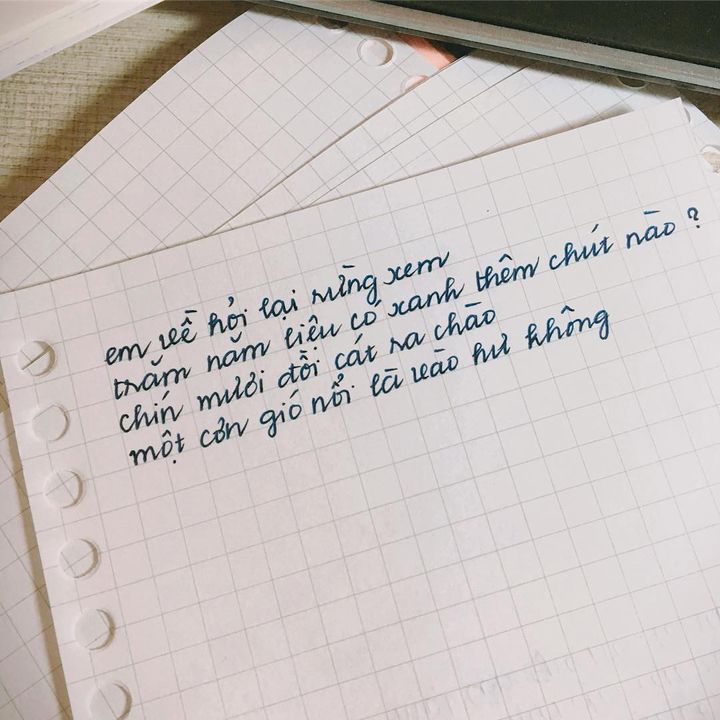 em về hỏi lại rừng xem
trăm năm liệu có xanh thêm chút nào?
chín mươi đồi cát ra chào
một cơn gió nổi là vào hư không